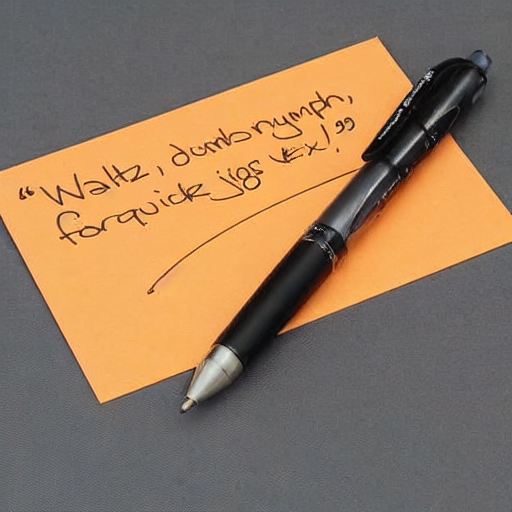 “Waltz, dombnymph,
forquick jigs VEX!”